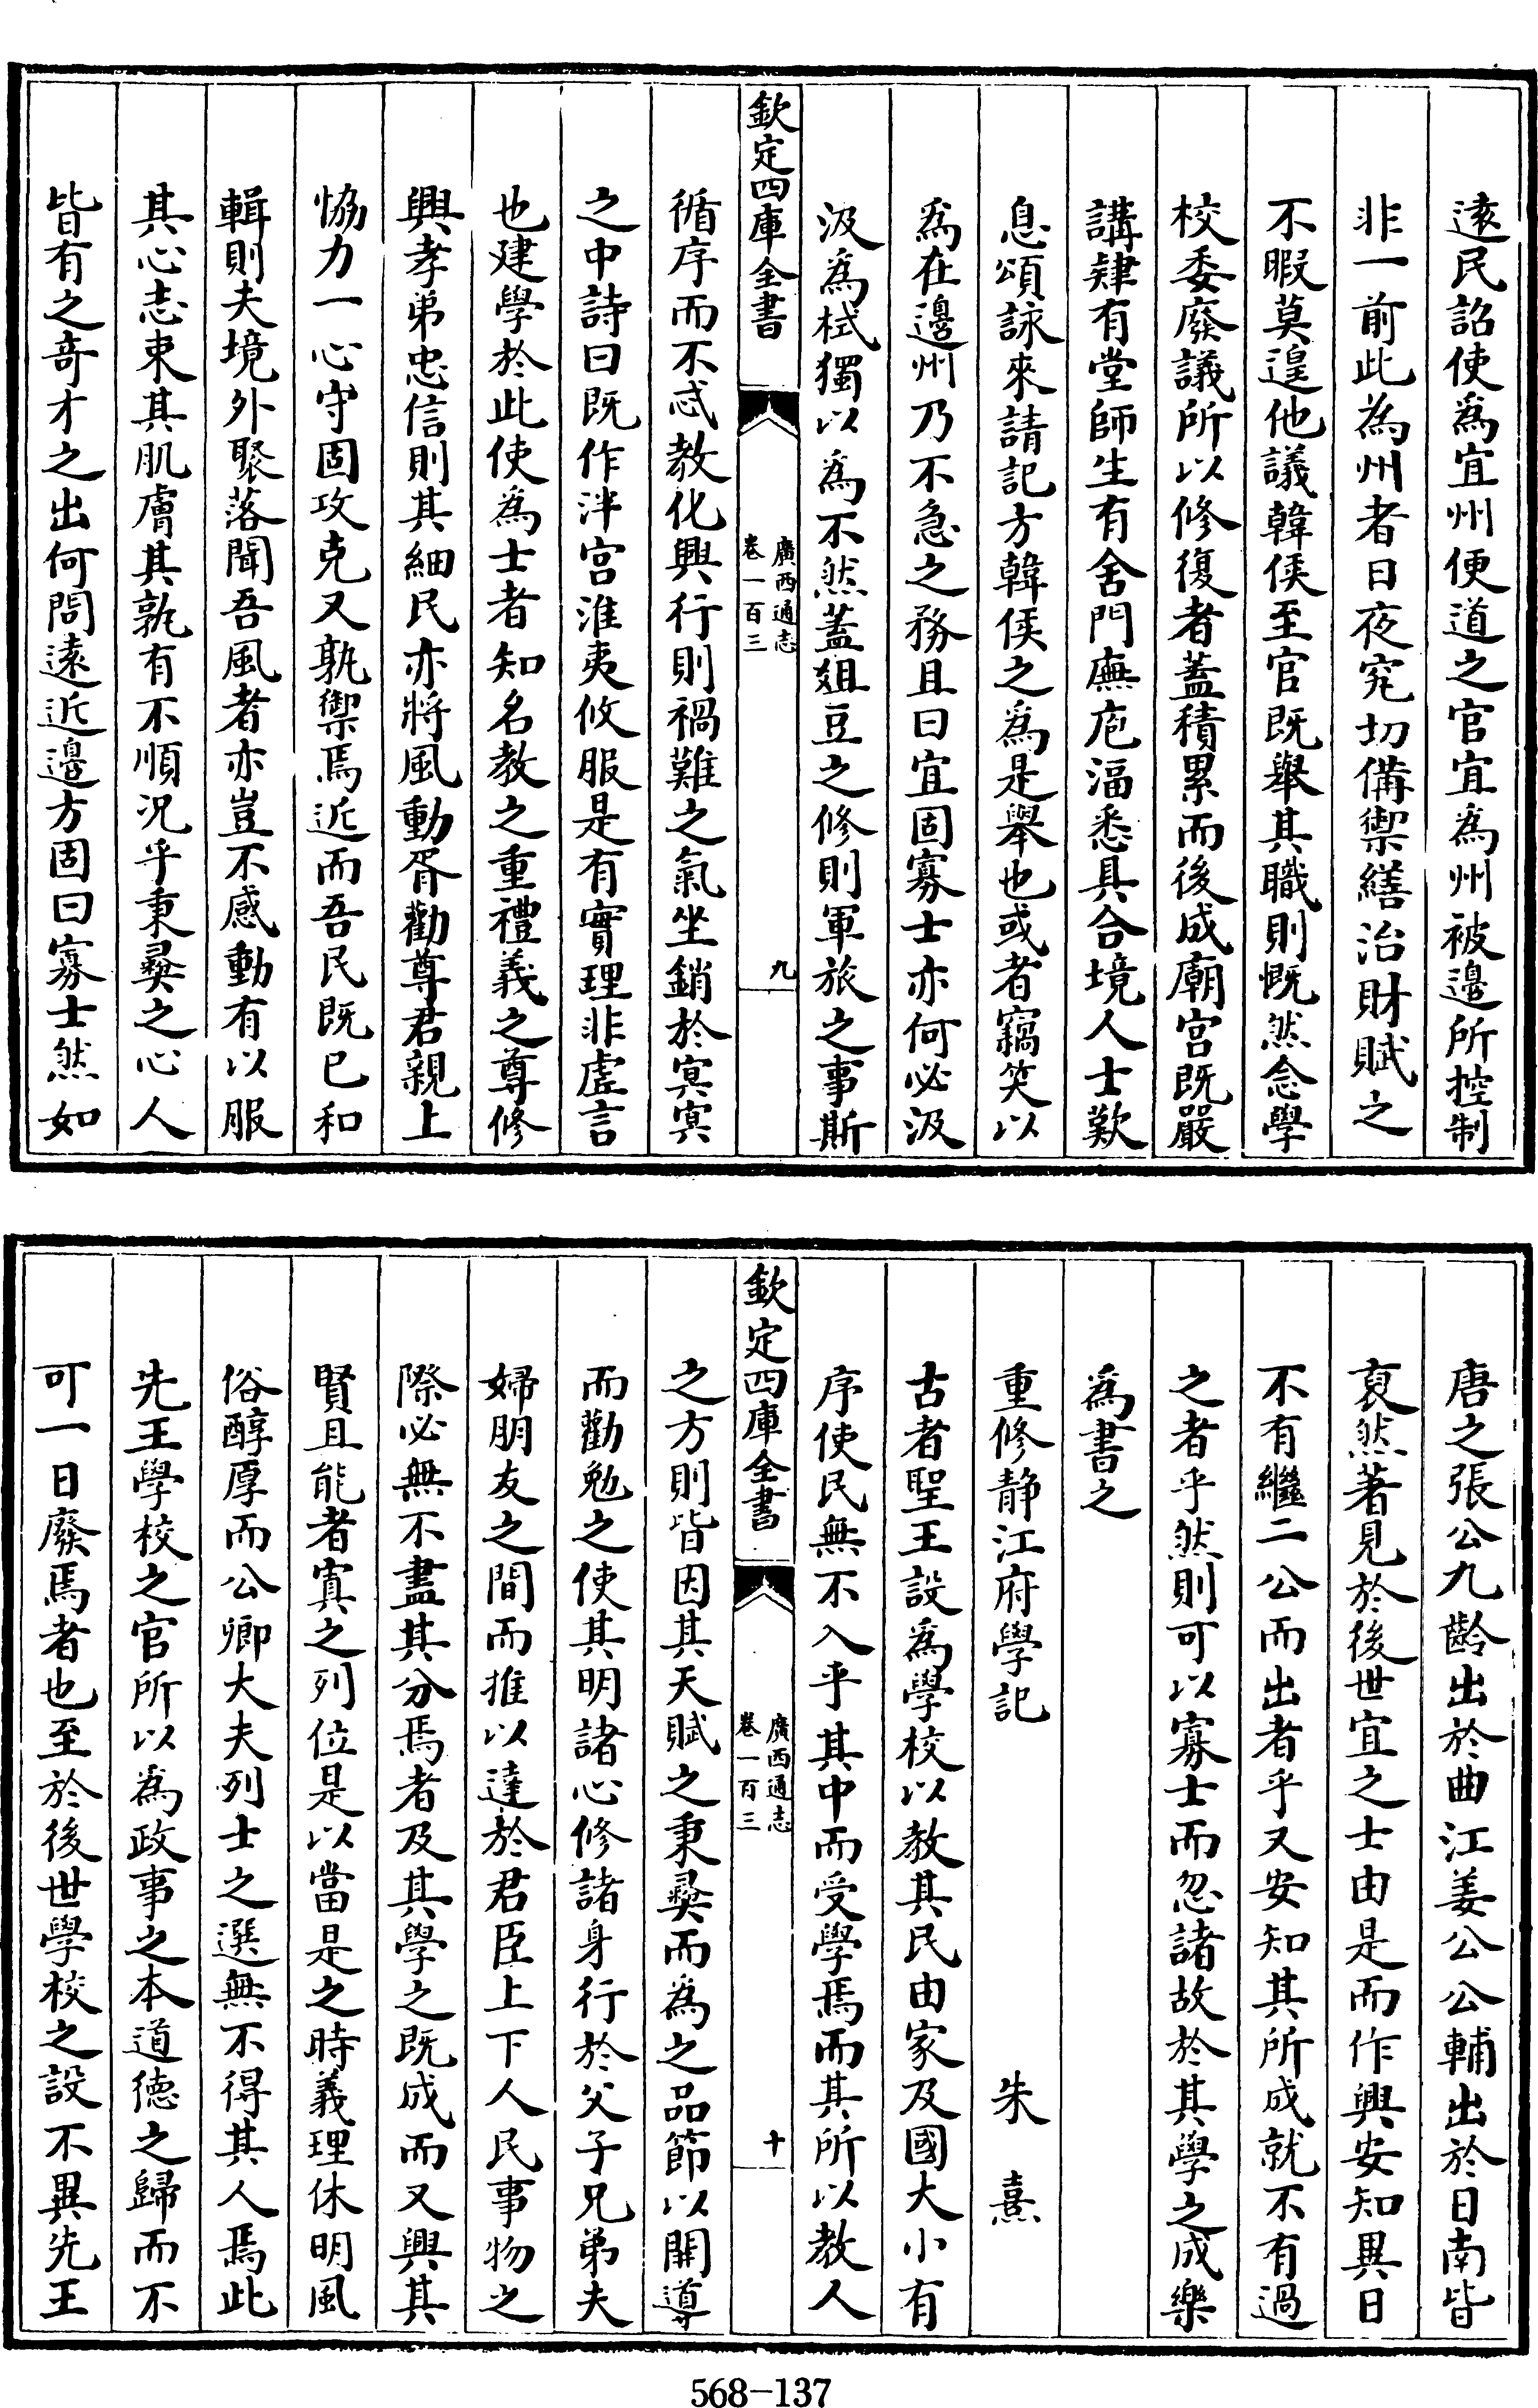 遠民詔使爲宜州便道之官宜爲州被邊所控制
非一前此為州者日夜究切備禦繕治財賦之
不暇莫遑他議韓侯至官既舉其職則慨然念學
校委廢議所以修復者蓋積累而後成廟宫既嚴
講肄有堂師生有舍門廡庖湢悉具合境人士歎
息頌詠來請記方韓侯之爲是舉也或者竊笑以
爲在邊州乃不急之務且曰宜固寡士亦何必汲
汲爲栻獨以爲不然蓋俎豆之修則軍旅之事斯
欽定四庫全書
廣西通志
卷一百三
九
循序而不忒教化興行則禍難之氣坐銷於冥冥
之中詩曰既作泮宫淮夷攸服是有實理非虛言
也建學於此使爲士者知名教之重禮義之尊修
興孝弟忠信則其細民亦將風動胥勸尊君親上
恊力一心守固攻克又孰禦焉近而吾民既已和
輯則夫境外聚落聞吾風者亦豈不感動有以服
其心志束其肌膚其孰有不順況乎秉彝之心人
皆有之竒才之出何間遠近邊方固曰寡士然如
唐之張公九齡出於曲江姜公公輔出於日南皆
裒然著見於後世宜之士由是而作興安知異日
不有繼二公而出者乎又安知其所成就不有過
之者乎然則可以寡士而忽諸故於其學之成樂
為書之
重修静江府學記 朱熹
古者聖王設爲學校以教其民由家及國大小有
序使民無不入乎其中而受學焉而其所以教人
欽定四庫全書
廣西通志
卷一百三
十
之方則皆因其天賦之秉彝而爲之品節以開導
而勸勉之使其明諸心修諸身行於父子兄弟夫
婦朋友之間而推以達於君臣上下人民事物之
際必無不盡其分焉者及其學之既成而又興其
賢且能者寘之列位是以當是之時義理休明風
俗醇厚而公卿大夫列士之選無不得其人焉此
先王學校之官所以為政事之本道德之歸而不
可一日廢焉者也至於後世學校之設不異先王
568-137